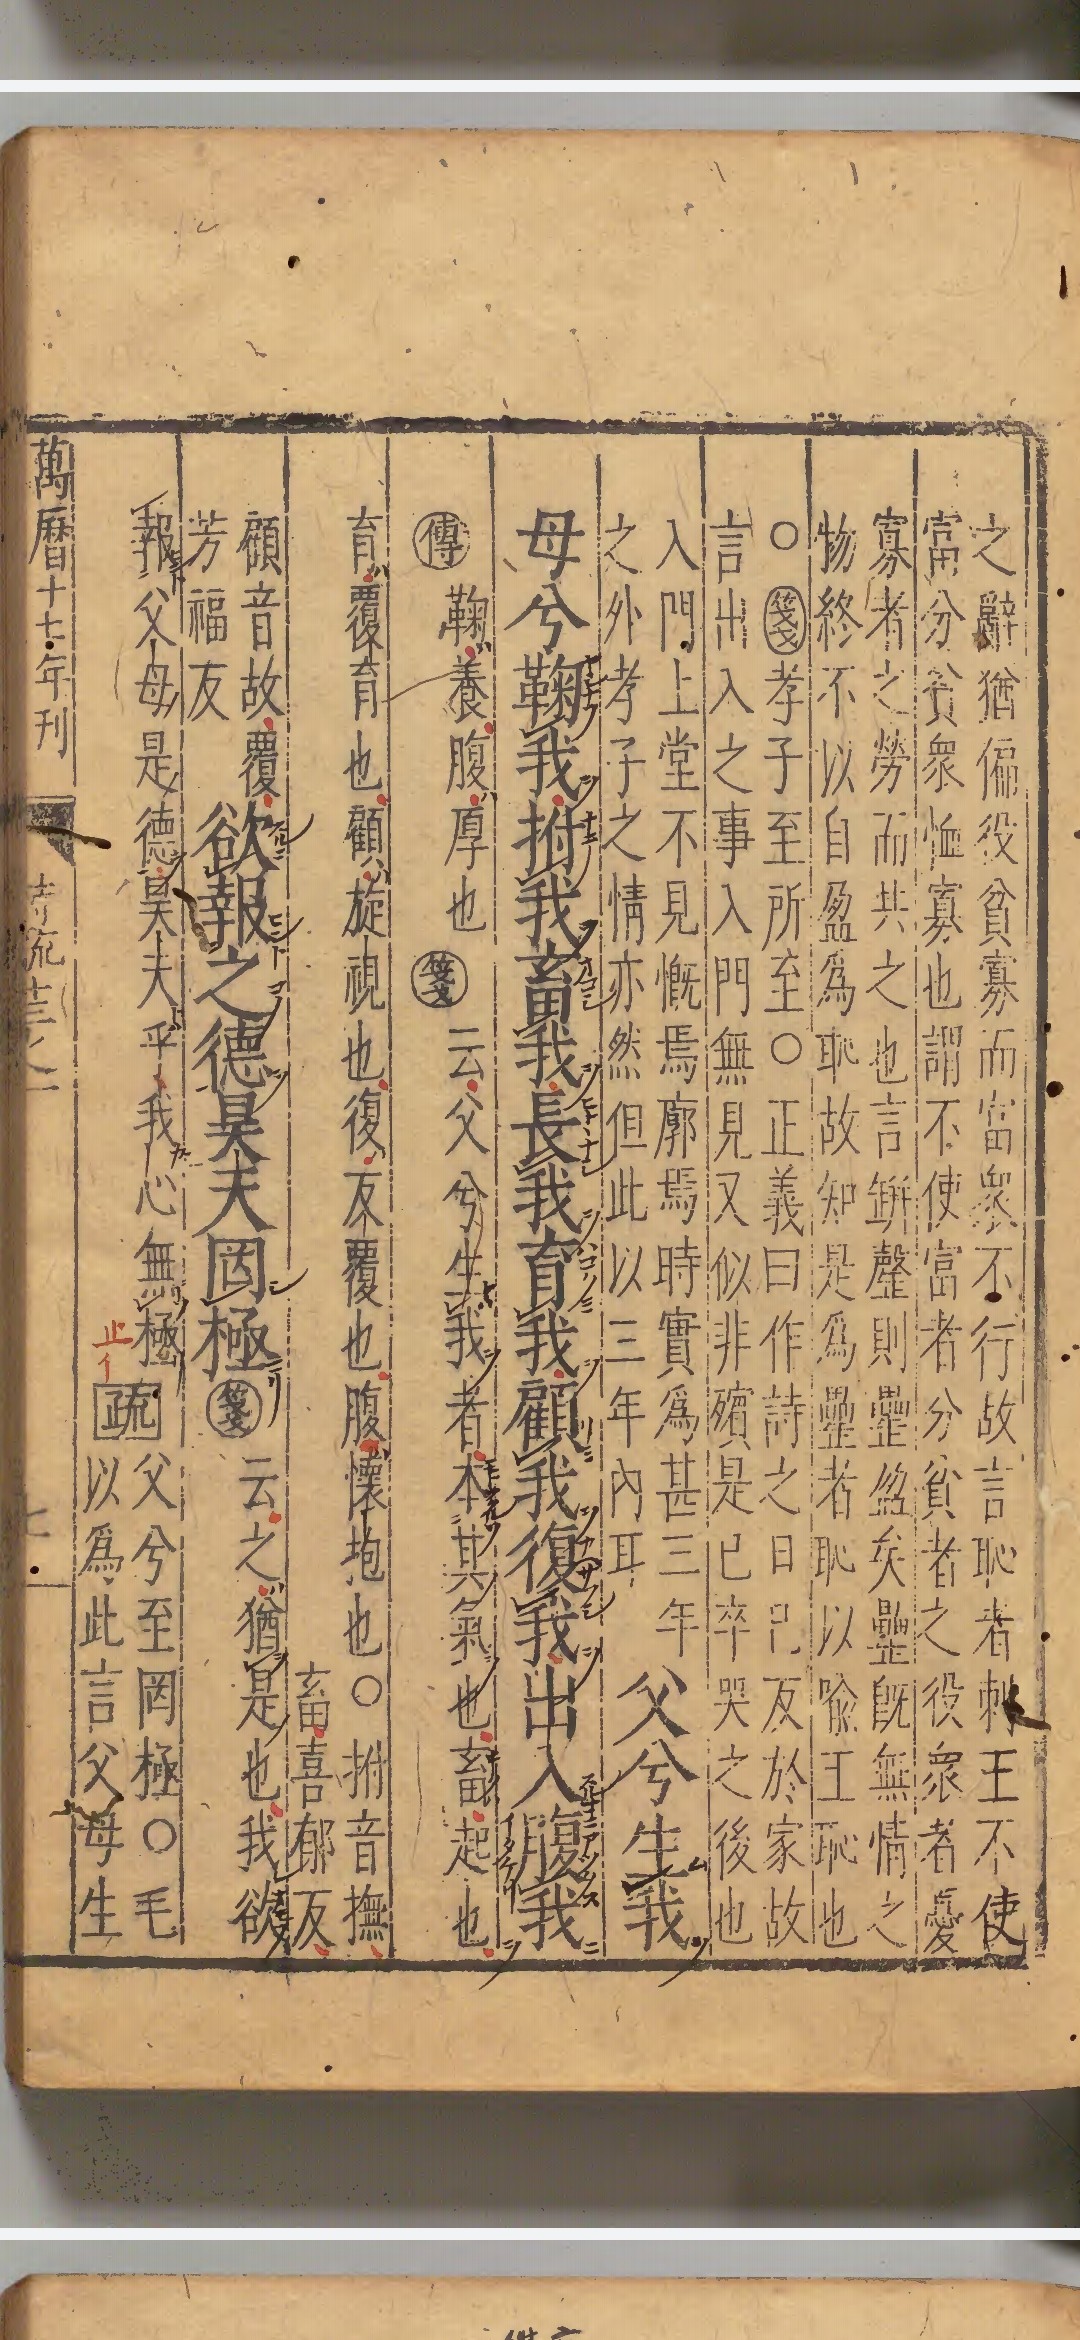 之辭猶偏役貧寡而富衆不行故言恥者刺王不使
富分貧衆恤寡也謂不使富者分貧者之役衆者憂
寡者之勞而共之也言缾罄則罍盈矣罍旣無情之
物終不以自盈爲恥故知是爲罍者恥以喩王恥也
○箋孝子至所至○正義曰作詩之日已反於家故
言出入之事入門無見又似非殯是已卒哭之後也
入門上堂不見慨焉廓焉時實爲甚三年
之外孝子之情亦然但此以三年內耳
父兮生我
母兮鞠我拊我畜我長我育我顧我復我出入腹我
傳鞠養腹厚也箋云父兮生我者本其氣也畜起也
育覆育也顧旋視也復反覆也腹懷抱也○拊音撫
畜喜郁反
顧音故覆
芳福反
欲報之德昊天罔極箋云之猶是也我欲
報父母是德昊天乎我心無極疏父兮至罔極○毛
以爲此言父母生
萬曆十七年刊
止